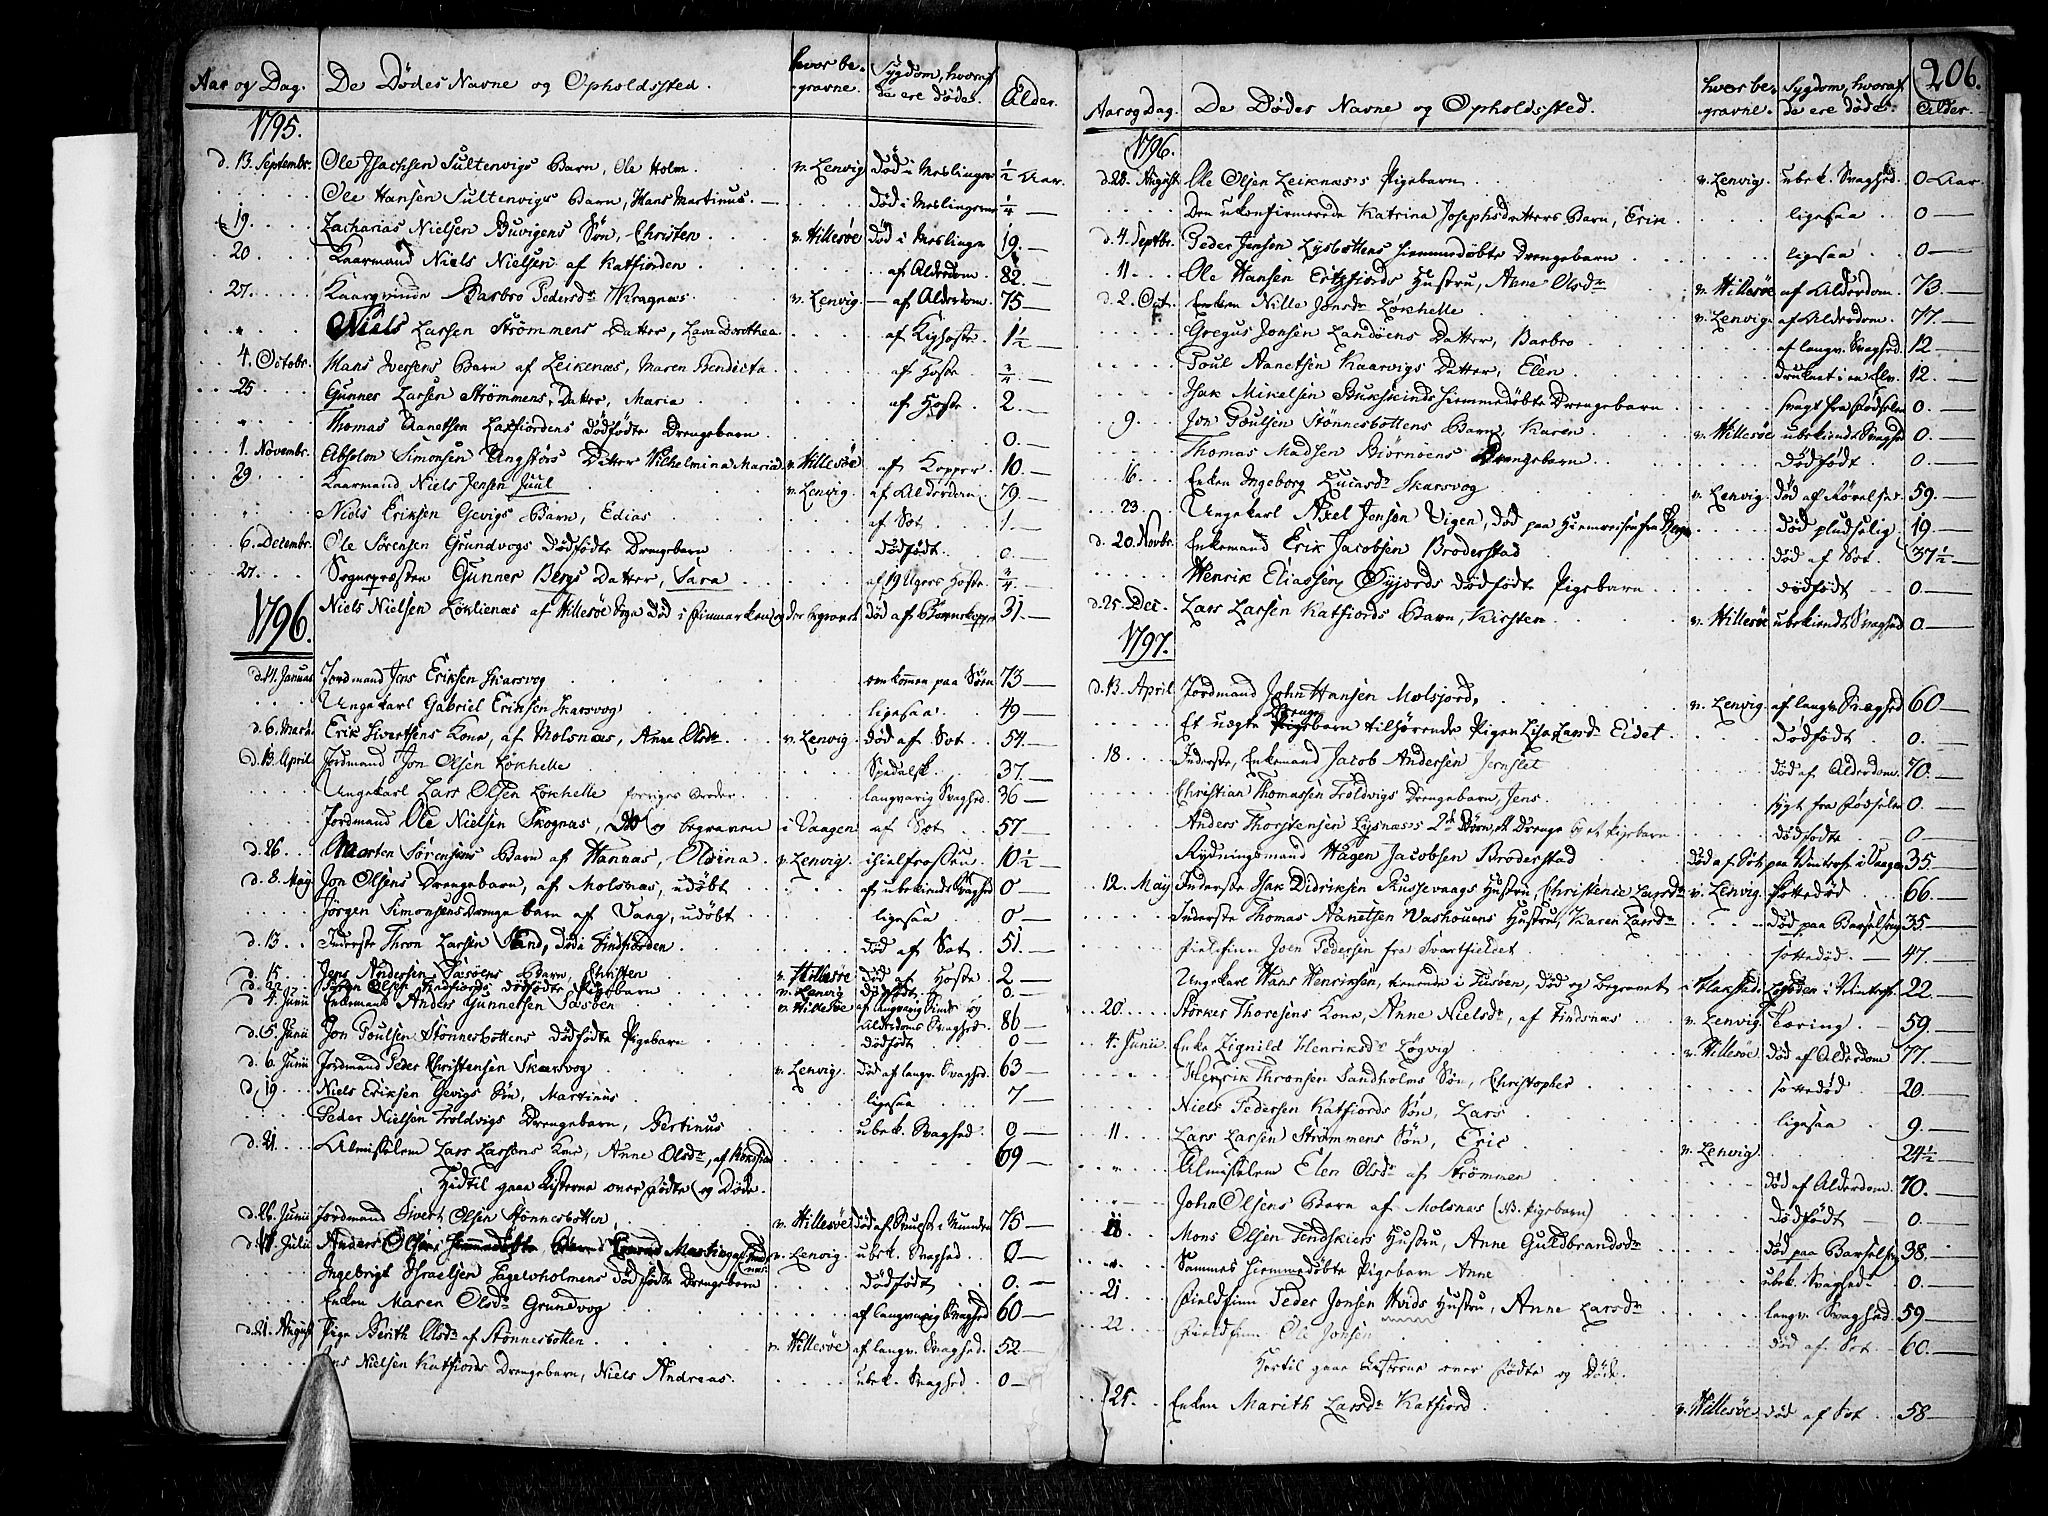 Aar og Dag. De Dødes Navne og Opholdssted. hvor be-gravne. Sygdom, hvoraf de ere døde. Alder.
1795.
d. 13. Septembr. Ole Isachsen Sultenvigs Barn, Ole Holm. v. Lenvig død i Meslinger ½ Aar.
Ole Hansen Sultenvigs Barn, Hans Martinus. død i Meslingerne ¼
19. Zacharias Nielsen Buvigens Søn, Christen v. Hillesøe død i Meslinger 19.
20 Kaarmand Niels Nielsen af Katfiorden af Alderdom. 82.
27. Kaarqvinde Barbro Pedersdr Kragnæs v. Lenvig af Alderdom. 75
Niels Larsen Strömmens Datter, Lava Dorothea af Kighoste 1½
4. Octobr. Hans Iversens Barn af Leikenæs, Maren Bendicta af Hoste ¾
25 Gunner Larsen Strömmens Datter, Maria af Hoste. 2.
Thomas Aanetsen Laxfiordens dødfødte Drengebarn 0.
1. Novembr. Absolon Simonsen Angstörs Datter Vilhelmina Maria v. Hillesøe af Kopper 10.
29. Kaarmand Niels Jensen Juul v. Lenvig. af Alderdom 79.
Niels Eriksen Gevigs Barn, Edias af Sot 1.
6. Decembr. Ole Sørensen Grundvogs dødfødte Drengebarn dødfødt. 0.
27. Sognepræsten Gunner Bergs Datter, Sara af 19 Ugers Hoste ¾
1796. Niels Nielsen Löklienæs af Hillesøe Sogn død i Finmarken og der begravet død af Børnekopper 31.
d. 14. Januar Jordmand Jens Eriksen Skarsvog omkommen paa Søen 73
Ungekarl Gabriel Eriksen Skarsvog ligesaa. 49
d. 6. Marti Erik Sivertsens Kone, af Molsnæs, Anne Olsdr v. Lenvig. død af Sot 54.
d. 13. April Jordmand Jon Olsen Lökhelle Spedalsk. 37.
Ungekarl Lars Olsen Lökhelle forriges Broder. langvarig Svaghed. 36
Jordmand Ole Nielsen Skognæs, død og begraven i Vaagen af Sot 57
d. 26. Morten Sørensens Barn af Hannæs, Oldina v. Lenvig. ihielfrossen 10½
d. 8. May Jon Olsens Drengebarn, af Molsnæs, udøbt af ubekiendt Svaghed 0
Jörgen Simonsens Drengebarn af Vang, udøbt ligesaa 0
d. 13 Inderste Thron Larsen Sand, død i Findfiorden død af Sot 51.
d. 15 Jens Andersen Sasöens Barn, Christen v. Hillesøe død af Hoste 2
d. 22 dødfødte Pigebarn v. Lenvig dødfødt. 0.
d. 4. Junii Enkemand Anders Gunnetsen Sasöen v. Hillesøe af langvarig og Alderdoms Svaghed 86
d. 5. Junii Jon Poulsen Stönnesbottens dødfødte Pigebarn dødfødt 0
d. 6. Junii Jordmand Peder Christensen Skarsvog v. Lenvig. død af langv. Svaghed. 63
d. 19 Niels Eriksen Gevigs Søn, Martinus ligesaa 7
Peder Nielsen Troldvigs Drengebarn, Bertinus ubek. Svaghed 0
d. 21 Almisselem Lars Larsens Kone, Anne Olsdr, af 69
Hidtil gaae Listerne over Fødte og Døde.
d. 26. Junii Jordmand Sivert Olsen Stönnesbotten v. Hillesøe død af i Munden 75
d. 17. Julii Anders Olsens v. Lenvig. ubek. Svaghed. 0
Ingebrigt Israelsen Tagelvholmens dødfødte Drengebarn dødfødt 0.
Enken Maren Olsdr Grundvog af langvarig Svaghed 60
d. 21. August Pige Berith Olsdr af Stönnesbotten v. Hillesøe af langv. Svaghed. 52
Nielsen Katfiords Drengebarn, Niels Andreas. ubek. Svaghed. 0
206.
Aar og Dag. De Dødes Navne og Opholdssted. hvor be-gravne. Sygdom, hvoraf de ere døde. Alder.
1796.
d. 28. August Ole Olsen Leiknæs's Pigebarn v. Lenvig. ubek. Svaghed. 0 Aar.
Den ukonfirmerede Katrina Josephsdatters Barn, Erik ligesaa 0
d. 4. Septbr. Peder Jensen Lysbottens hiemmedøbte Drengebarn ligesaa 0
11 Ole Hansen Hustru, Anne Olsdr v. Hillesøe af Alderdom. 73.
d. 2. Oct. Enken Nille Jonsdr Lökhelle v. Lenvig. af Alderdom. 77.
Gregus Jonsen Landöens Datter, Barbro af langv. Svaghed. 12
Poul Aanetsen Kaarvigs Datter, Elen druknet i en Elv. 12.
Isak Mikelsen Bukskinds hiemmedøbte Drengebarn svagt fra Fødselen 0.
9. Jon Poulsen Stönnesbottens Barn, Karen v. Hillesøe ubekiendt Svaghed 0.
Thomas Madsen Biörnöens Drengebarn dødfødt 0.
16. Enken Ingeborg Lucasdr Skarsvog v. Lenvig. død af 59.
23. Ungekarl Axel Jensen Vigen, død paa Hiemreisen fra Bergen død pludselig 19.
d. 20. Novbr. Enkemand Erik Jacobsen Broderstad død af Sot. 37½
Henrik Eliassen Öyjords dødfødte Pigebarn dødfødt 0
d. 25. Dec. Lars Larsen Katfiords Barn, Kirsten v. Hillesøe ubekiendt Svaghed 0.
1797.
d. 13. April Jordmand John Hansen Molsjord v. Lenvig. af langv. Svaghed 60
Et uægte Drenge Pigebarn tilhørende Pigen Eidet. dødfødt 0.
18. Inderste, Enkemand Jacob Andersen Jernslet død af Alderdom. 70.
Christian Thomassen Troldvigs Drengebarn, Jens sygt fra Fødselen 0.
Anders Thorstensen Lysnæs's 2de Børn, et Drenge og et Pigebarn dødfødte 0
Rydningsmand Hagen Jacobsen Broderstad død af Sot paa Vintersf. i Vaagen 35.
12. May Inderste Isak Didriksen Russevaags Hustru, Christense Larsdr v. Lenvig. sottedød 66.
Inderste Thomas Aanetsen Vashovens Hustru, Karen Larsdr død paa Barselseng 35.
Fieldfinn Joen Pedersen fra Svartfieldet sottedød. 47.
Ungekarl Hans Henriksen, tienende i Tusöen, død og begravet i Flakstad Lofoden i Vintersf. 22.
20. Storker Thoresens Kone, Anne Nielsdr, af Findsnæs v. Lenvig. Tæring. 59.
4. Junii Enke Zignild Henriksdr Løgvig v. Hillesøe død af Alderdom 77.
Henrik Thronsen Sandholms Søn, Christopher sottedød 20.
Niels Pedersen Katfiords Søn, Lars ligesaa 9.
11. Lars Larsen Strömmens Søn, Eric v. Lenvig. 24½
Almisselem Elen Olsdr af Strömmen død af Alderdom 70.
John Olsens Barn af Molsnæs (NB. Pigebarn) dødfødt 0.
18 Mons Olsen Findskiers Hustru, Anne Guldbrandsdr død paa Barselseng 38.
Sammes hiemmedøbte Pigebarn Anne ubek. Svaghed. 0.
21 Fieldfinn Peder Jonsen Hvids Hustru, Anne Larsdr langv. Svaghed. 59
22 Fieldfinn Ole Jonsen død af Sot 60.
Hertil gaae Listerne over Fødte og Døde.
25. Enken Marith Larsdr Katfiord v. Hillesøe død af Sot 58